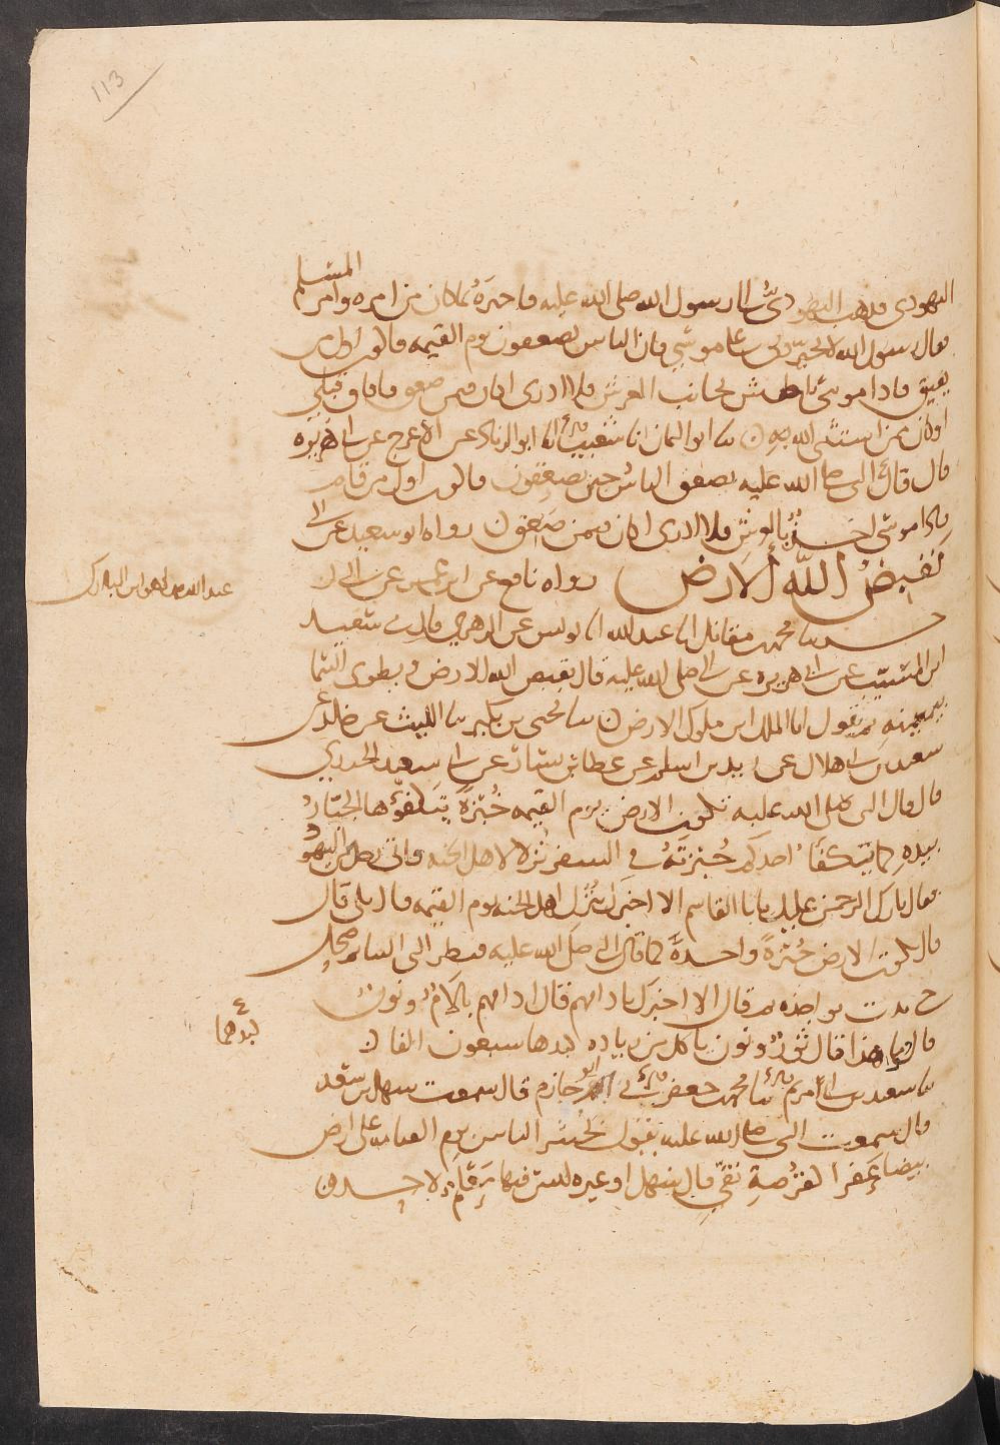 113
اليهودى فذهب اليهودىُّ الى رسول الله صلى الله عليه فاخبرَهُ بماكان من امره وامر المسلم
فقال رسول الله لا تخيرونى على موسى فان الناس يصعقون يوم القيمه فاكون اول من
يفيق فاذا موسى باطش بجانب العرش فلا ادرى اكان فيمن صعق فافاق قبلى
او كان ممن استثنى الله ن ابو اليمان انا شعيب انا ابو الزناد عن الاعرج عن ابى هريره
قال قال النبى صلى الله عليه يصعق الناسُ حين يصعقون فاكون اول من قام
فاذا موسى اخذٌ بالعرش فلا ادرى اكان فيمن صَعق ن رواه ابو سعيد عن النبى
يَقبِضُ اللّه الارض رواه نافع عن ابن عمر عن النبى ن
محمد بن مقاتل انا عبد الله انا يونس عن الزهرى قال سعيد
عبد الله هو ابن المبارك
ابن المسيّب عن ابى هريره عن النبى صلى الله عليه قال يقبض الله الارض ويطوى السّما
بيمينهِ ثم يقول انا الملك اين ملوك الارض ن يحيى بن بكير الليث عن خلد عن
سعيد بن ابى هلال عن زيد بن اسلم عن عطا بن يسار عن ابى سعيد الخدرى
قال قال النبى صلى الله عليه تكون الارض يوم القيمه خُبْزةً يتكفَّؤُها الجبّارُ
بيدهِ كما يتكفّأ احدكم خُبْزتَهُ فى السفر نزلا لاهل الجنه فاتى رجل من اليهود
فقال بارك الرحمن عليك يابا القاسم الا اخبرك بنُزُل اهل الجنه يوم القيمه قال بلى قال
قال تكون الارض خُبْزةً واحدةً كما قال النبى صلى الله عليه فنظر الى النبى ثم ضحك
حتى بدت نواجذه ثم قال الا اخبرك بادامهم قال ادامهم بالامٌ ونونٌ
قالوا وما هذا قال ثورٌ ونون ياكل من زياده كبدها سبعون الفا ن
كبدهما
سعيد بن ابى مريم محمد بن جعفر ابو حازم قال سمعت سهل بن سعد
قال سمعت النبى صلى الله عليه يقول يُحشر الناس يوم القيامه على ارض
بيضاءَ عَفرا كقُرْصةِ نَقىٍّ قال سهل او غيره ليس فيها مَعْلَم لاحد ن